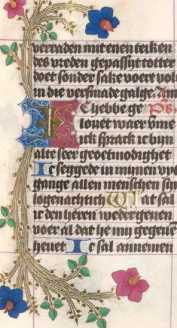 verraden mit enen teiken
des vreden gepassyt totter
doet sonder sake voere vol
in die versmade galge. Am
Ic hebbe ge Ps.
louet waer vme
ick sprack ic byn
alte seer groetmodighet
Ic seggede in minen vp
gange allen menschen sin
logenachtich Wat sal
ic den heren wedergeuen
voer al dat he my gegeue
heuet Ic sal annemen